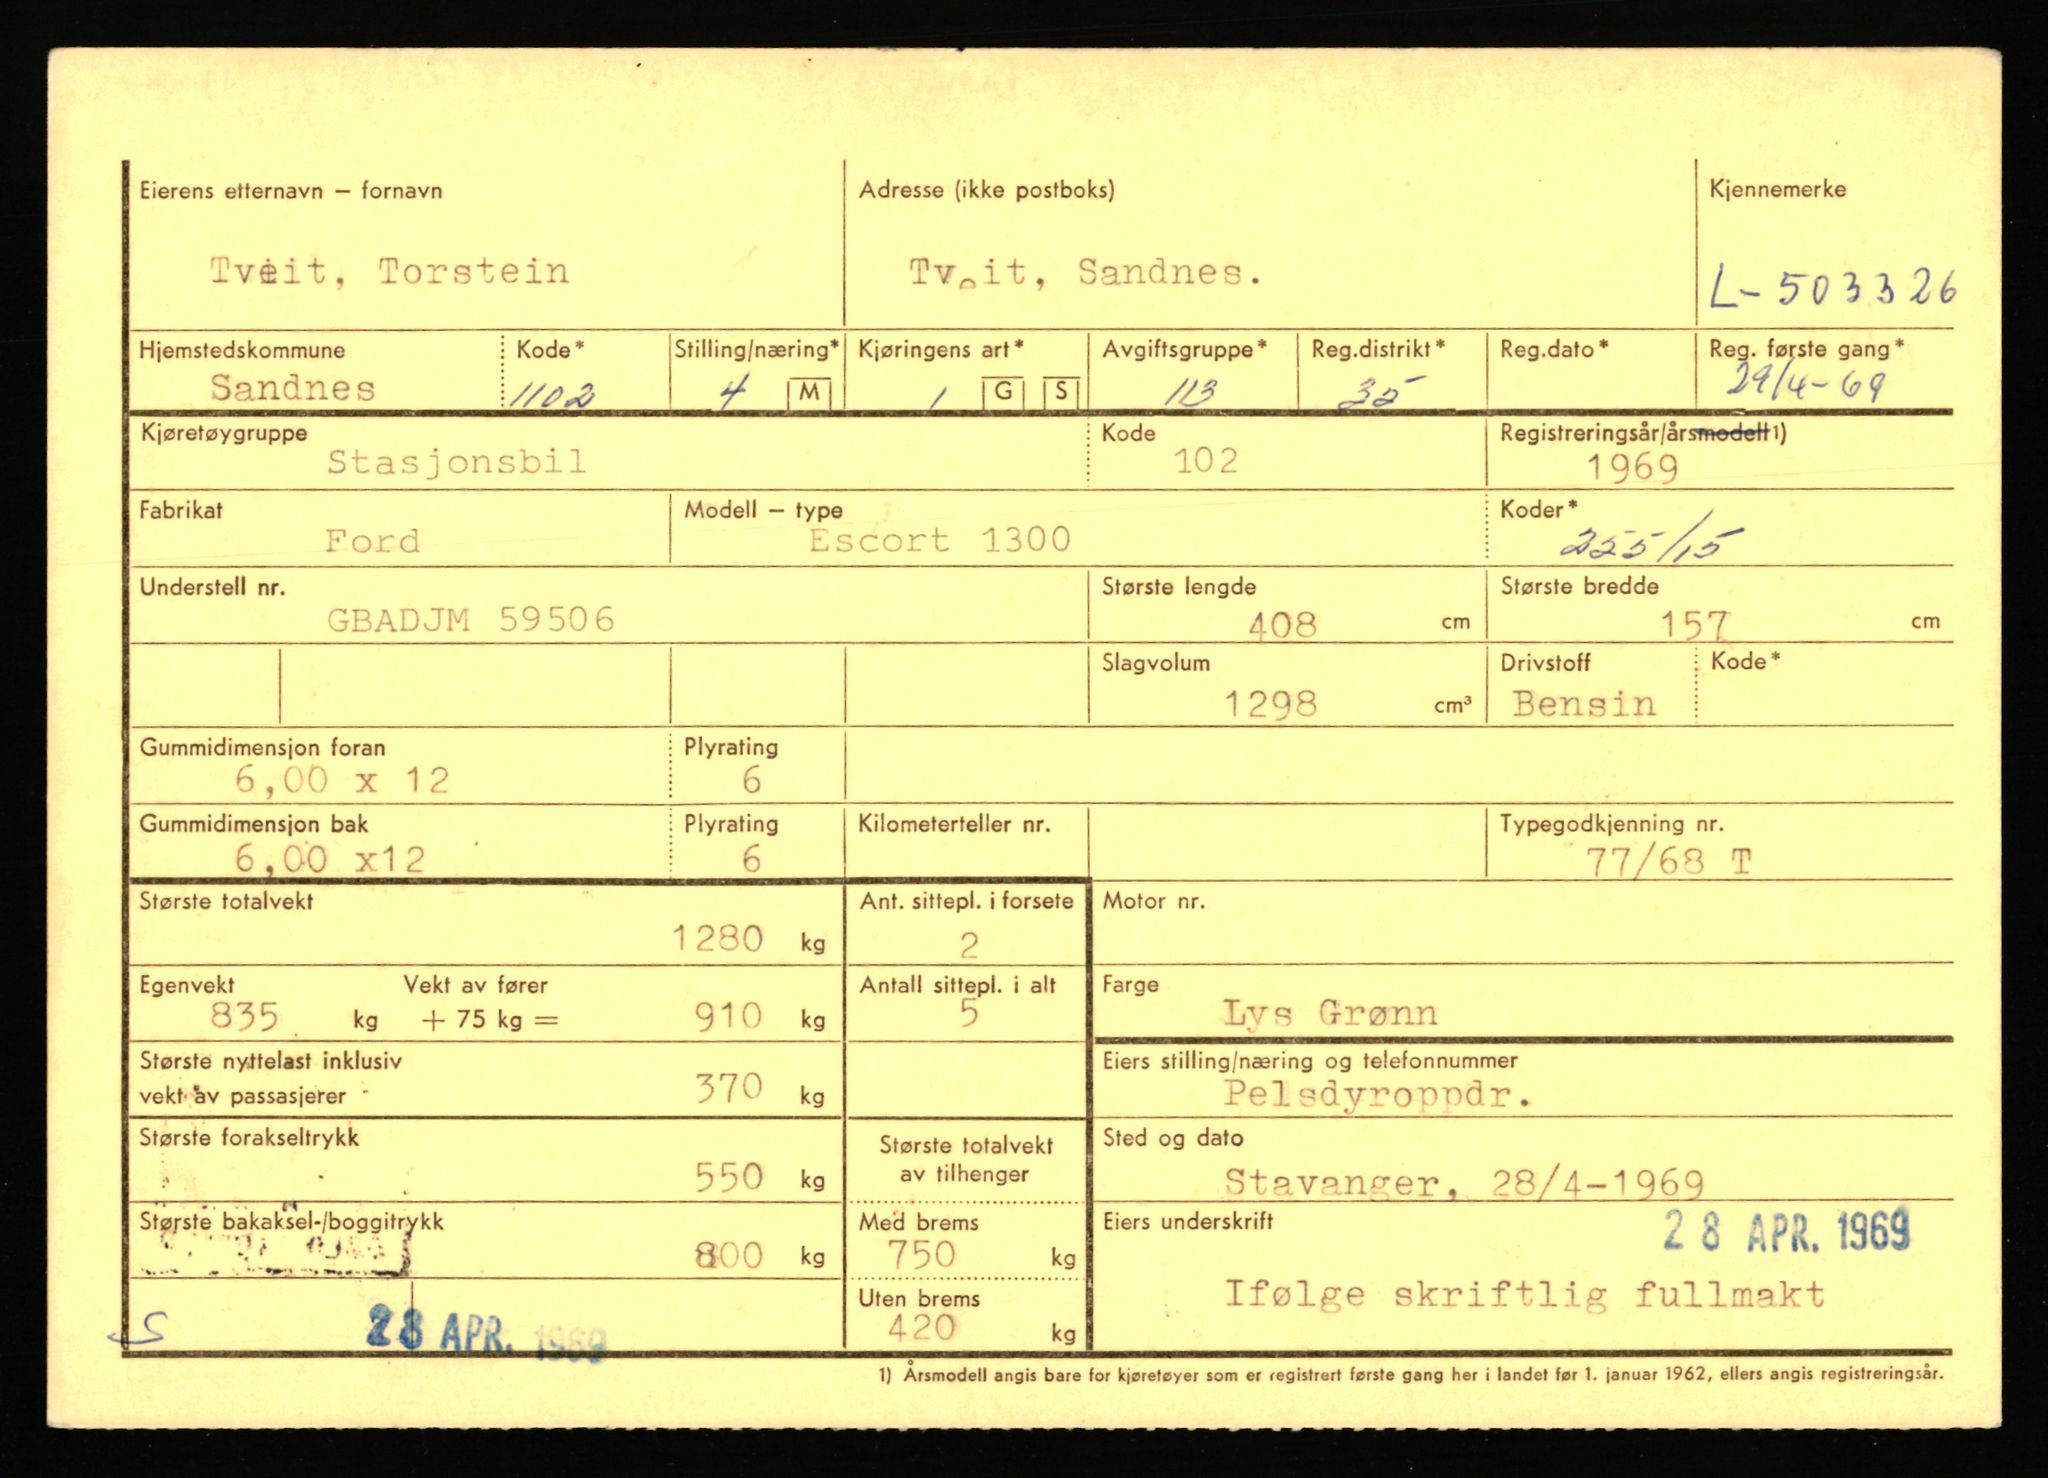 Eierens etternavn – fornavn
Adresse (ikke postboks)
Kjennemerke
Tveit, Torstein
Tveit, Sandnes.
L-503326
Hjemstedskommune
Kode*
Stilling/næring*
Kjøringens art*
Avgiftsgruppe*
Reg.distrikt*
Reg.dato*
Reg. første gang*
Sandnes
1102
4 M
1 G S
113
35
29/4-69
Kjøretøygruppe
Kode
Registreringsår/årsmodell 1)
Stasjonsbil
102
1969
Fabrikat
Modell – type
Koder*
Ford
Escort 1300
255/15
Understell nr.
Største lengde
Største bredde
GBADJM 59506
408 cm
157 cm
Slagvolum
Drivstoff
Kode*
1298 cm³
Bensin
Gummidimensjon foran
Plyrating
6,00 x 12
6
Gummidimensjon bak
Plyrating
Kilometerteller nr.
Typegodkjenning nr.
6,00 x12
6
77/68 T
Største totalvekt
Ant. sittepl. i forsete
Motor nr.
1280 kg
2
Egenvekt
Vekt av fører
Antall sittepl. i alt
Farge
835 kg + 75 kg = 910 kg
5
Lys Grønn
Største nyttelast inklusiv
vekt av passasjerer
370 kg
Eiers stilling/næring og telefonnummer
Pelsdyroppdr.
Største forakseltrykk
550 kg
Største totalvekt
av tilhenger
Sted og dato
Stavanger, 28/4-1969
Største bakaksel-/boggitrykk
800 kg
Med brems
750 kg
Eiers underskrift
28 APR. 1969
Ifølge skriftlig fullmakt
Uten brems
420 kg
28 APR. 1969
1) Årsmodell angis bare for kjøretøyer som er registrert første gang her i landet før 1. januar 1962, ellers angis registreringsår.